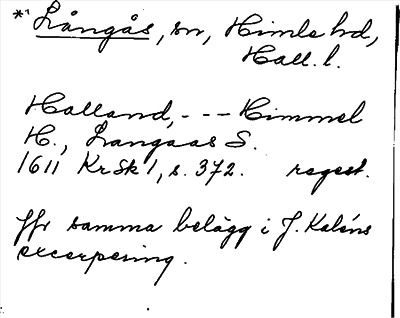 *¹ Långås, sn, Himle hd,
Hall. l.
Halland, - - - Himmel
H., Langaas S.
1611 KrSk 1, s. 372. regest.
Jfr samma belägg i J. Kaléns
excerpering.